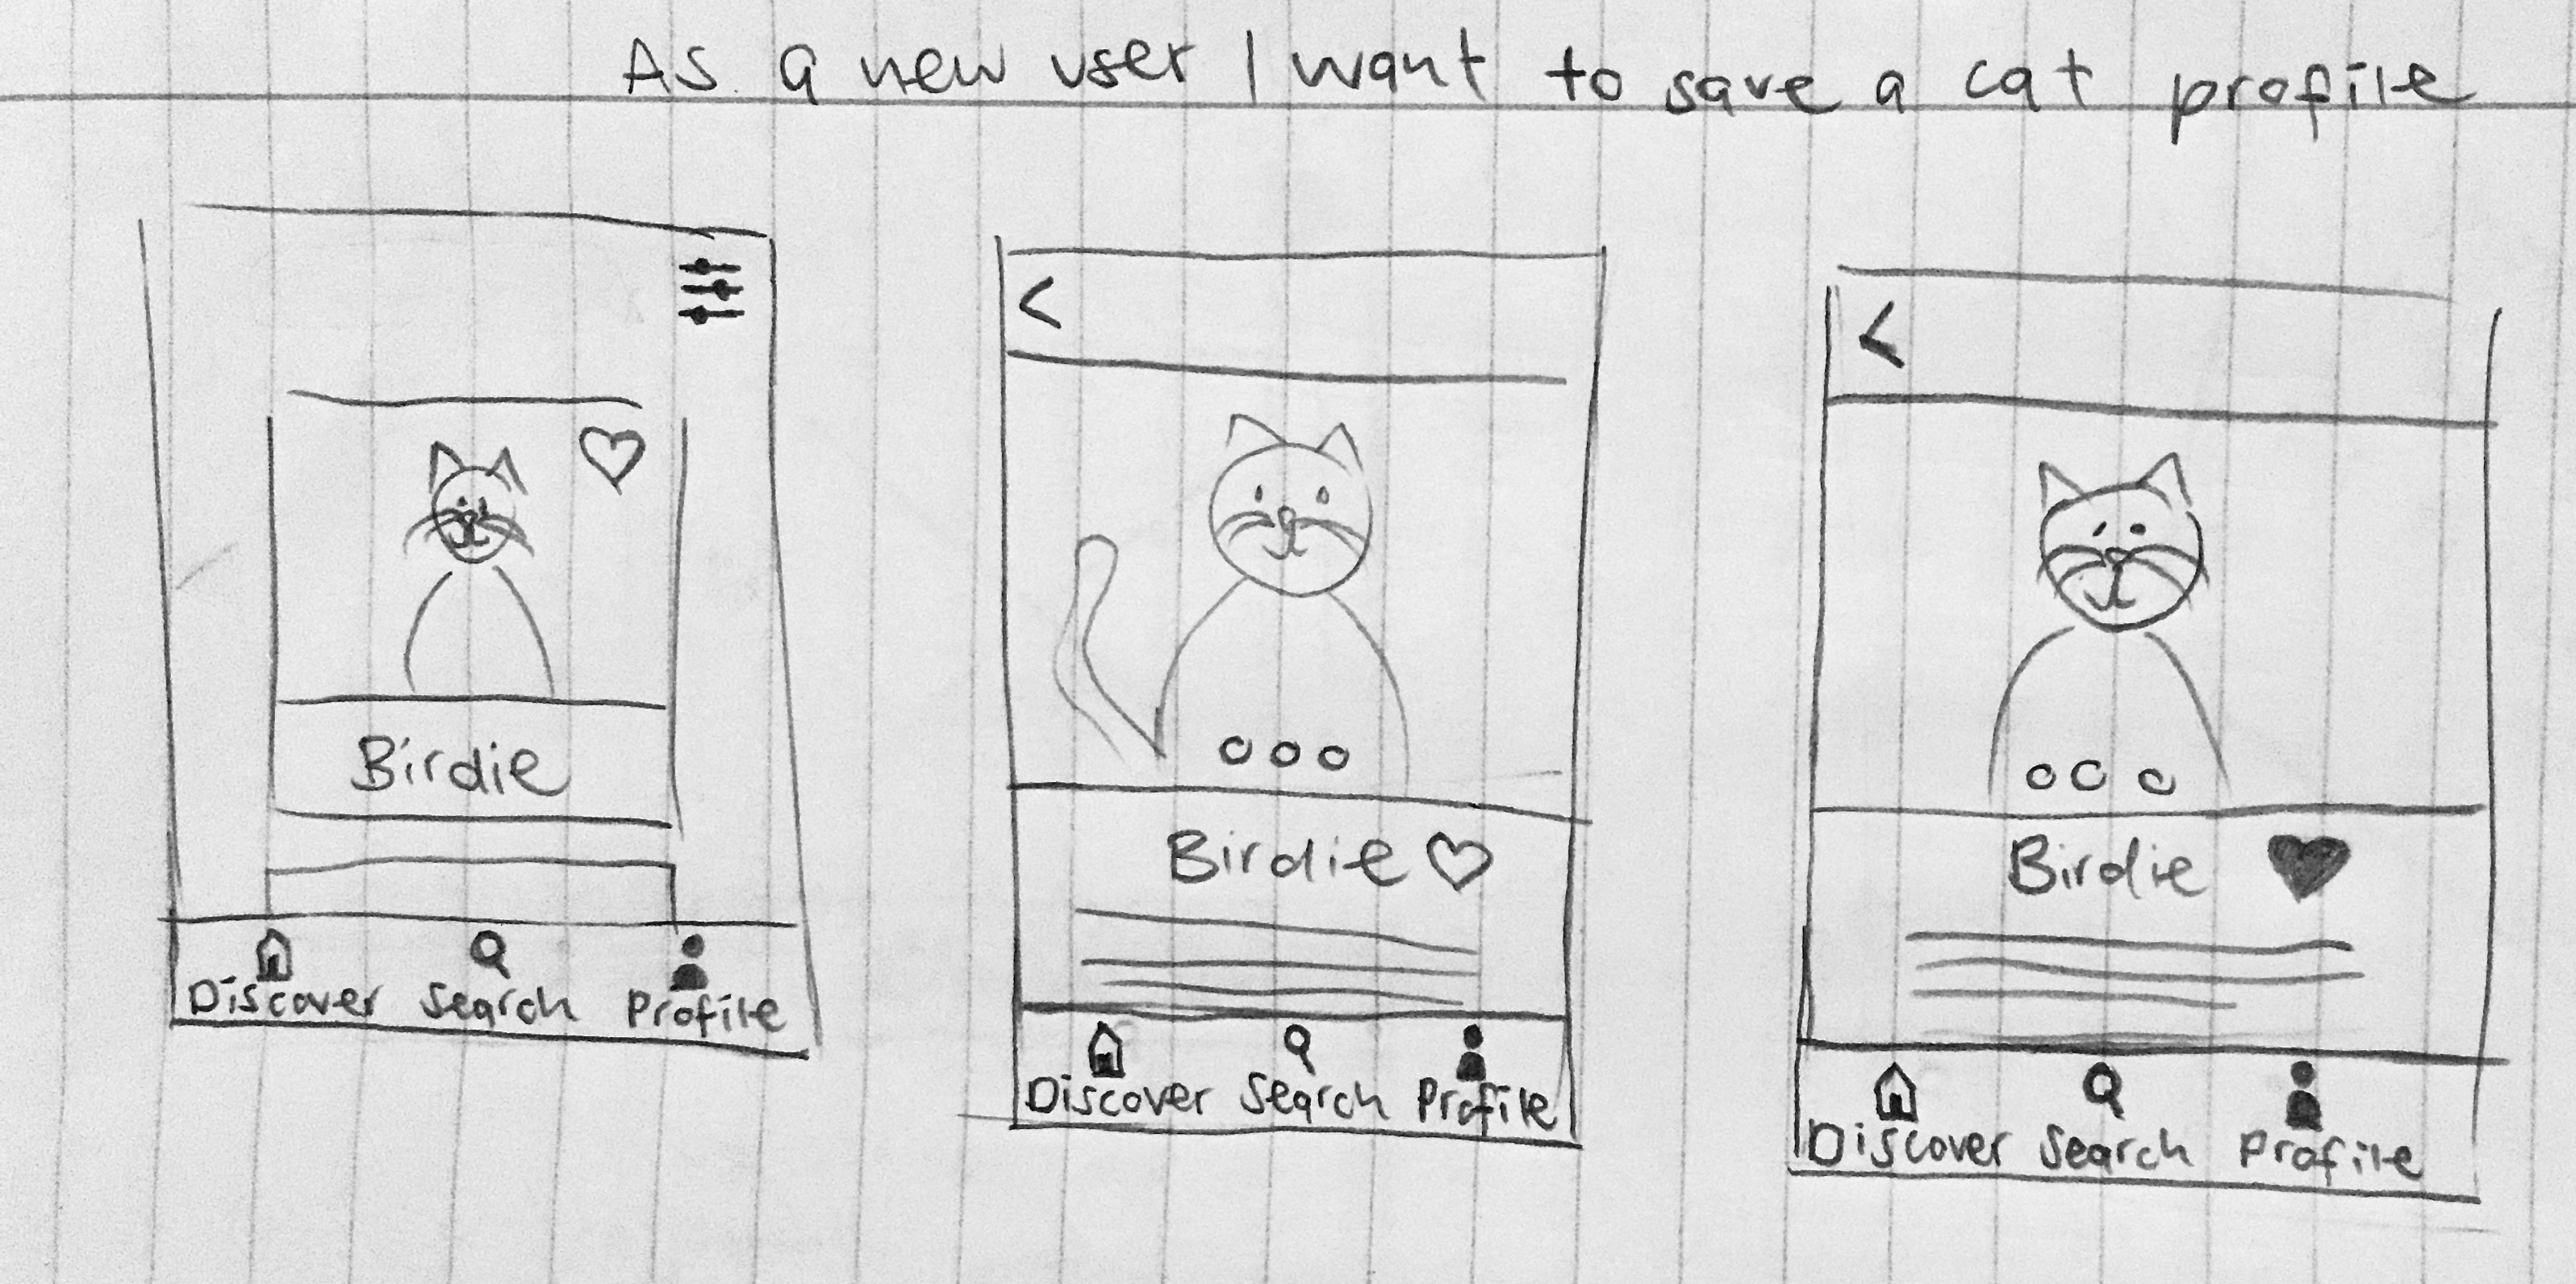 As a new user I want to save a cat profile
Birdie
Discover Search Profile
Birdie
Discover Search Profile
Birdie
Discover Search Profile